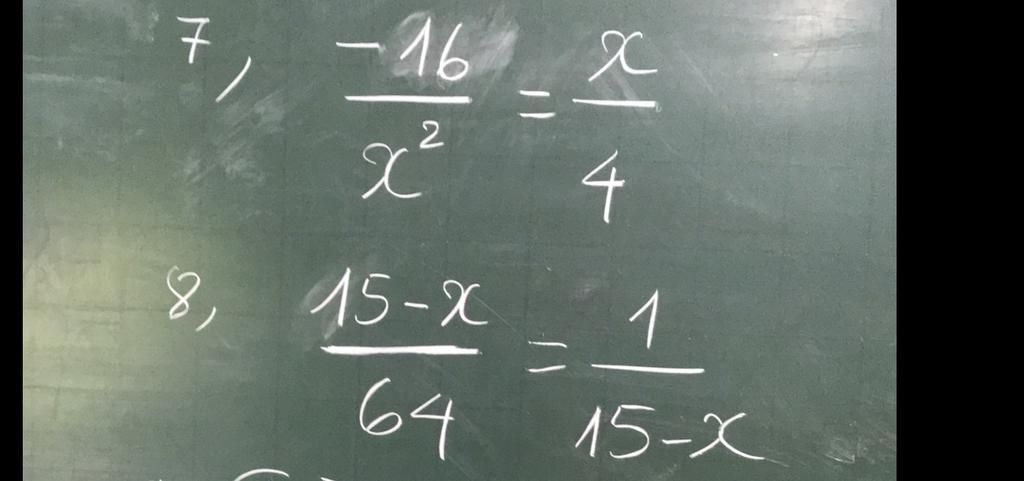 7, -16/x² = x/4
8, 15-x/64 = 1/15-x